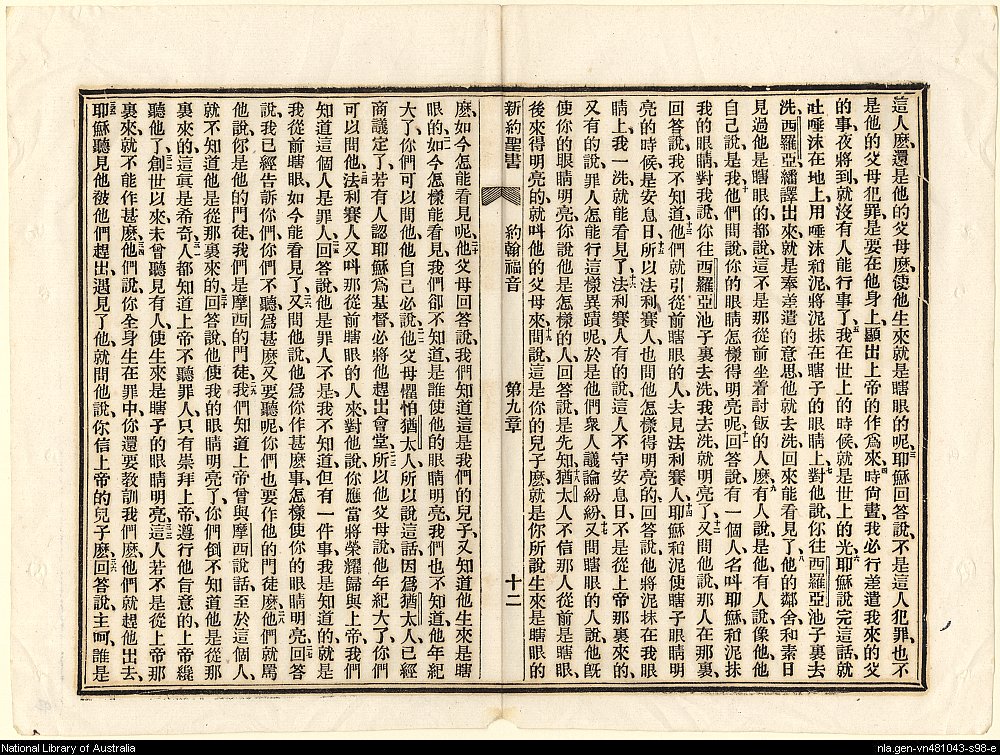 這人麽、還是他的父母麽、使他生來就是瞎眼的呢、三耶穌回答說、不是這人犯罪、也不
是他的父母犯罪、是要在他身上、顯出上帝的作爲來、四時尙晝我必行差遣我來的父
的事、夜將到就沒有人能行事了、五我在世上的時候、就是世上的光、六耶穌說完這話、就
吐唾沫在地上、用唾沫和泥、將泥抹在瞎子的眼睛上、七對他說、你往西羅亞池子裏去
洗、西羅亞繙譯出來、就是奉差遣的意思、他就去洗、回來能看見了、八他的鄰舍、和素日
見過他是瞎眼的、都說、這不是那從前坐着討飯的人麽、九有人說是他、有人說像他、他
自己說是我、十他們問說、你的眼睛怎樣得明亮呢、十一回答說、有一個人、名叫耶穌、和泥抹
我的眼睛、對我說、你往西羅亞池子裏去洗、我去洗、就明亮了、十二又問他說、那人在那裏、
回答說、我不知道、十三他們就引從前瞎眼的人、去見法利賽人、十四耶穌和泥使瞎子眼睛明
亮的時候、是安息日、十五所以法利賽人也問他怎樣得明亮的、回答說、他將泥抹在我眼
睛上、我一洗就能看見了、十六法利賽人有的說、這人不守安息日、不是從上帝那裏來的、
又有的說、罪人怎能行這樣異蹟呢、於是他們衆人議論紛紛、十七又問瞎眼的人說、他旣
使你的眼睛明亮、你說他是怎樣的人、回答說、是先知、十八猶太人不信那人從前是瞎眼、
後來得明亮的、就叫他的父母來、十九問說、這是你的兒子麽、就是你所說生來是瞎眼的
新約聖書 約翰福音 第九章 十二
麽、如今怎能看見呢、二十他父母回答說、我們知道這是我們的兒子、又知道他生來是瞎
眼的、二一如今怎樣能看見、我們卻不知道、是誰使他的眼睛明亮、我們也不知道、他年紀
大了、你們可以問他、他自己必說、二二他父母懼怕猶太人、所以說這話、因爲猶太人已經
商議定了、若有人認耶穌爲基督、必將他趕出會堂、二三所以他父母說、他年紀大了、你們
可以問他、二四法利賽人又叫那從前瞎眼的人來、對他說、你應當將榮耀歸與上帝、我們
知道這個人是罪人、二五回答說、他是罪人不是、我不知道、但有一件事我是知道的、就是
我從前瞎眼、如今能看見了、二六又問他說、他爲你作甚麽事、怎樣使你的眼睛明亮、二七回答
說、我已經告訴你們、你們不聽、爲甚麽又要聽呢、你們也要作他的門徒麽、二八他們就罵
他說、你是他的門徒、我們是摩西的門徒、二九我們知道上帝曾與摩西說話、至於這個人、
就不知道他是從那裏來的、三十回答說、他使我的眼睛明亮了、你們倒不知道他是從那
裏來的、這眞是希奇、三一人都知道上帝不聽罪人、只有崇拜上帝、遵行他旨意的、上帝纔
聽他了、三二創世以來、未曾聽見有人使生來是瞎子的眼睛明亮、三三這人若不是從上帝那
裏來、就不能作甚麽、三四他們說、你全身生在罪中、你還要敎訓我們麽、他們就趕他出去、
三五耶穌聽見他被他們趕出、遇見了他、就問他說、你信上帝的兒子麽、三六回答說、主呵、誰是
National Library of Australia
nla.gen-vn481043-s98-e